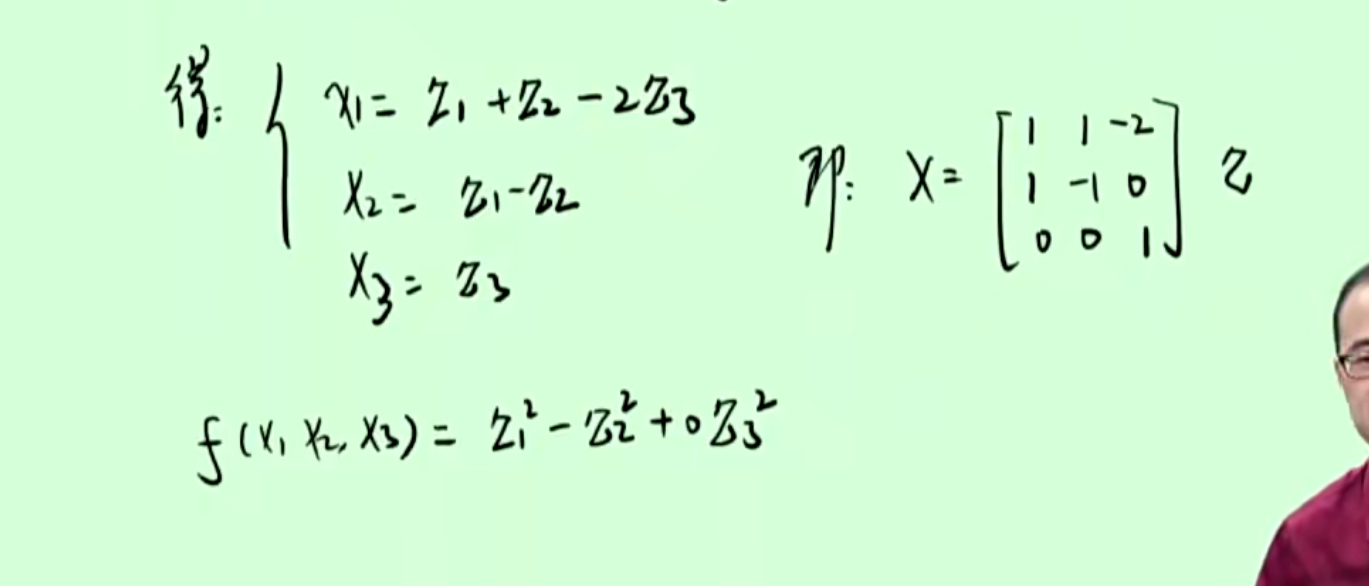 得: { x1 = z1 + z2 - 2z3
x2 = z1 - z2
x3 = z3
即: X = [ 1 1 -2
1 -1 0
0 0 1 ] z
f(x1 x2, x3) = z1² - z2² + 0z3²